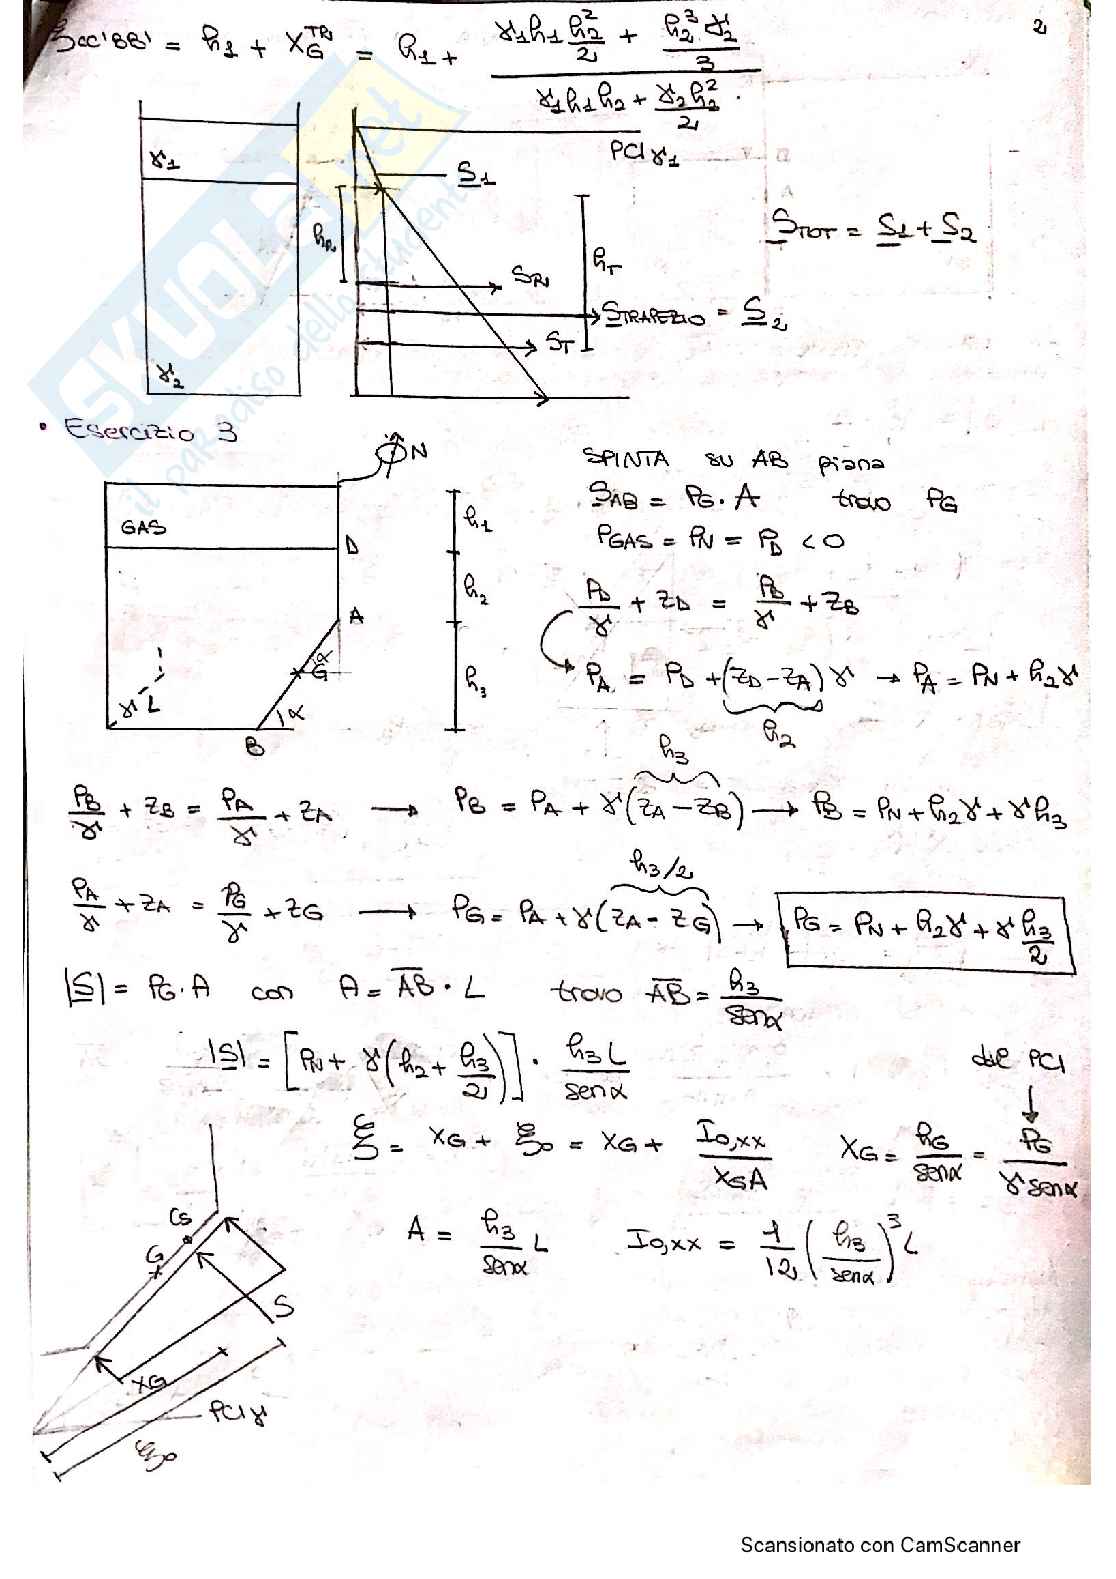 2
ξCC'BB' = h1 + XG^TRI = h1 + (γ1h1 h2²/2 + h2³γ2/3) / (γ1h1h2 + γ2h2²/2)
γ1
PCI γ1
S1
hR
hT
STOT = S1 + S2
SR
STRAPEZIO = S2
ST
γ2
SKUOLA.net
il paradiso dello studente
• Esercizio 3
N
SPINTA su AB piana
SAB = PG · A trovo PG
GAS
h1
D
PGAS = PN = PD < 0
h2
PD/γ + ZD = PB/γ + ZB
A
α
G
h3
PA = PD + (ZD - ZA)γ → PA = PN + h2γ
h2
γ L
α
B
h3
PB/γ + ZB = PA/γ + ZA → PB = PA + γ(ZA - ZB) → PB = PN + h2γ + γh3
h3/2
PA/γ + ZA = PG/γ + ZG → PG = PA + γ(ZA - ZG) → PG = PN + h2γ + γ h3/2
|S| = PG · A con A = AB · L trovo AB = h3/senα
|S| = [PN + γ(h2 + h3/2)] · h3 L/senα
dal PCI
ξ = XG + ξ0 = XG + I0,xx/XGA XG = hG/senα = PG/γ senα
A = h3/senα L I0,xx = 1/12 (h3/senα)³ L
CS
G
S
XG
PCI γ
ξ0
Scansionato con CamScanner